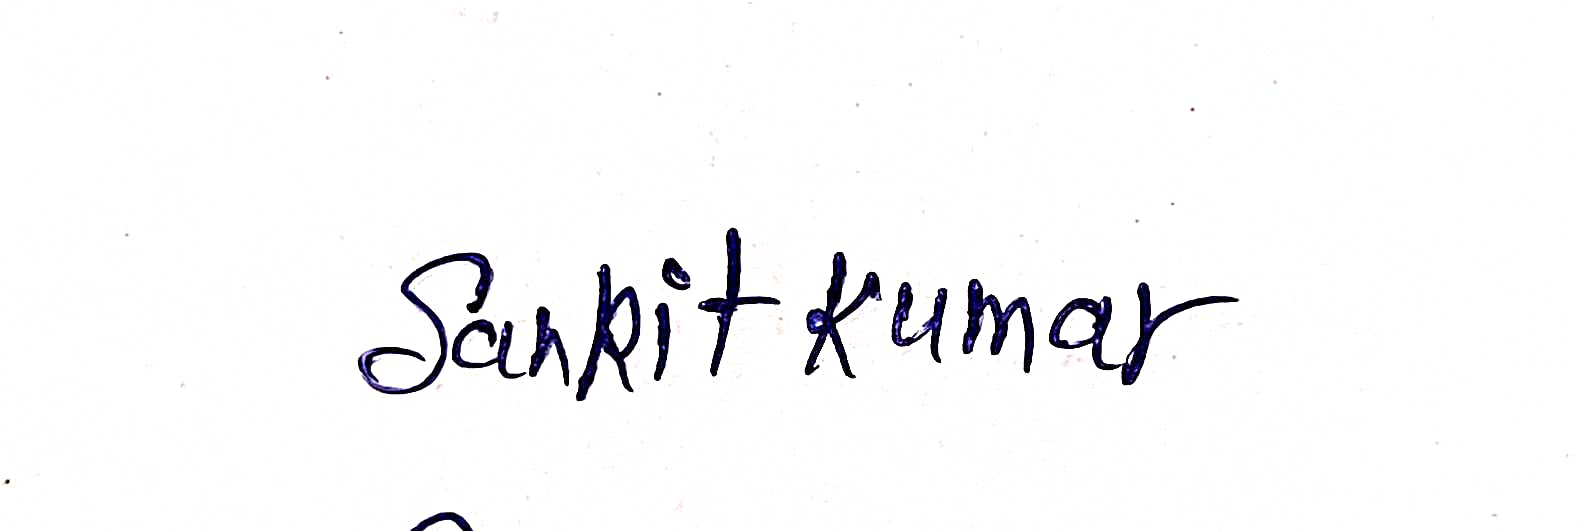 Sankit Kumar